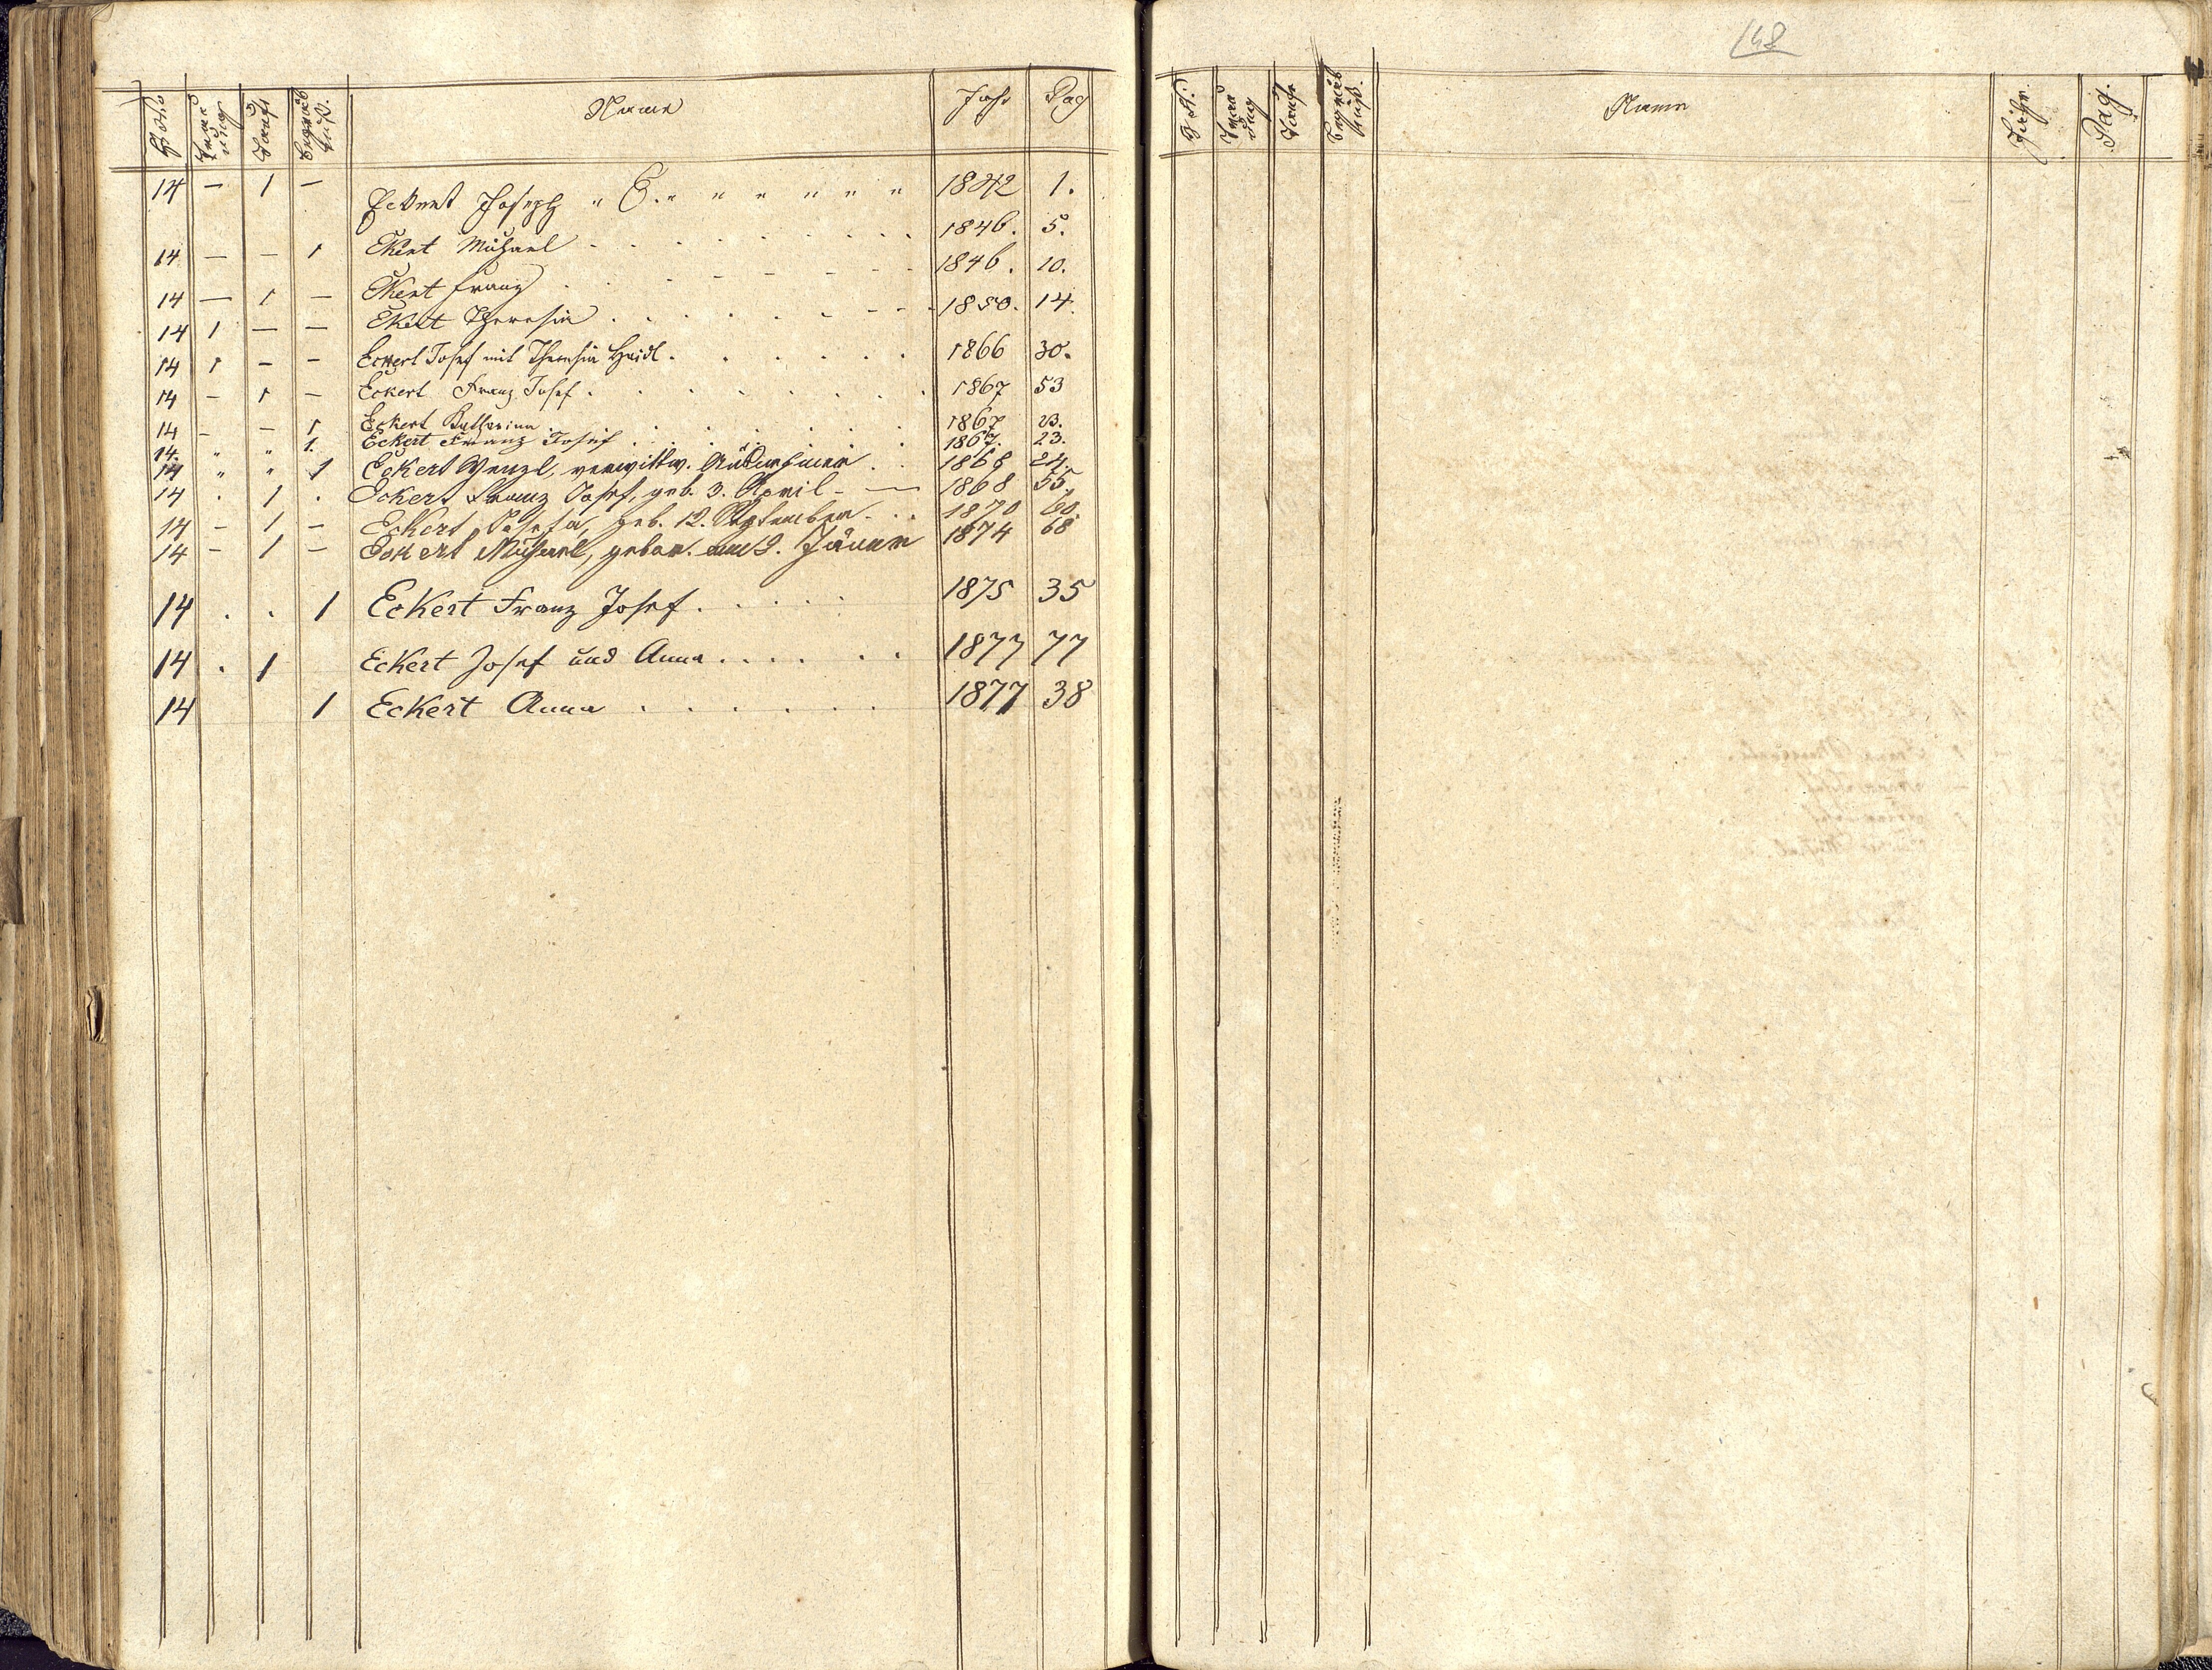 Trauung Taufe Begräbniß. Name Jahr Pag
14 — 1 — Eckert Joseph " " " " " " " 1842 1.
14 — — 1 Ekert Michael . . . . . . . . 1846. 5.
14 — 1 — Ekert Franz . . . - - - - - 1846. 10.
14 1 — — Ekert Theresia . . . . . . - - - 1850. 14.
14 1 - - Eckert Josef mit Theresia Haidl . . . . . . 1866 30.
14 - 1 - Eckert Franz Josef . . . . . . . 1867 53
14 - - 1 Eckert Katharina . . . . . . . 1867 23.
14. " " 1. Eckert Franz Josef . . . . . . 1867. 23.
14 " " 1 Eckert Wenzl, verwittw. . . 1868 24.
14 . 1 . Eckert Franz Josef, geb. 3. April - — 1868 55.
14 - 1 - Eckert Josefa, geb. 12. September - . . 1870 60.
14 - 1 - Eckert Michael, gebor. am 2. Jänner 1874 68
14 . . 1 Eckert Franz Josef . . . . . 1875 35
14 . 1 Eckert Josef und Anna . . . . . . 1877 77
14 1 Eckert Anna . . . . . . 1877 38
148
Trauung Taufe Begräbniß. Name Jahr Pag.